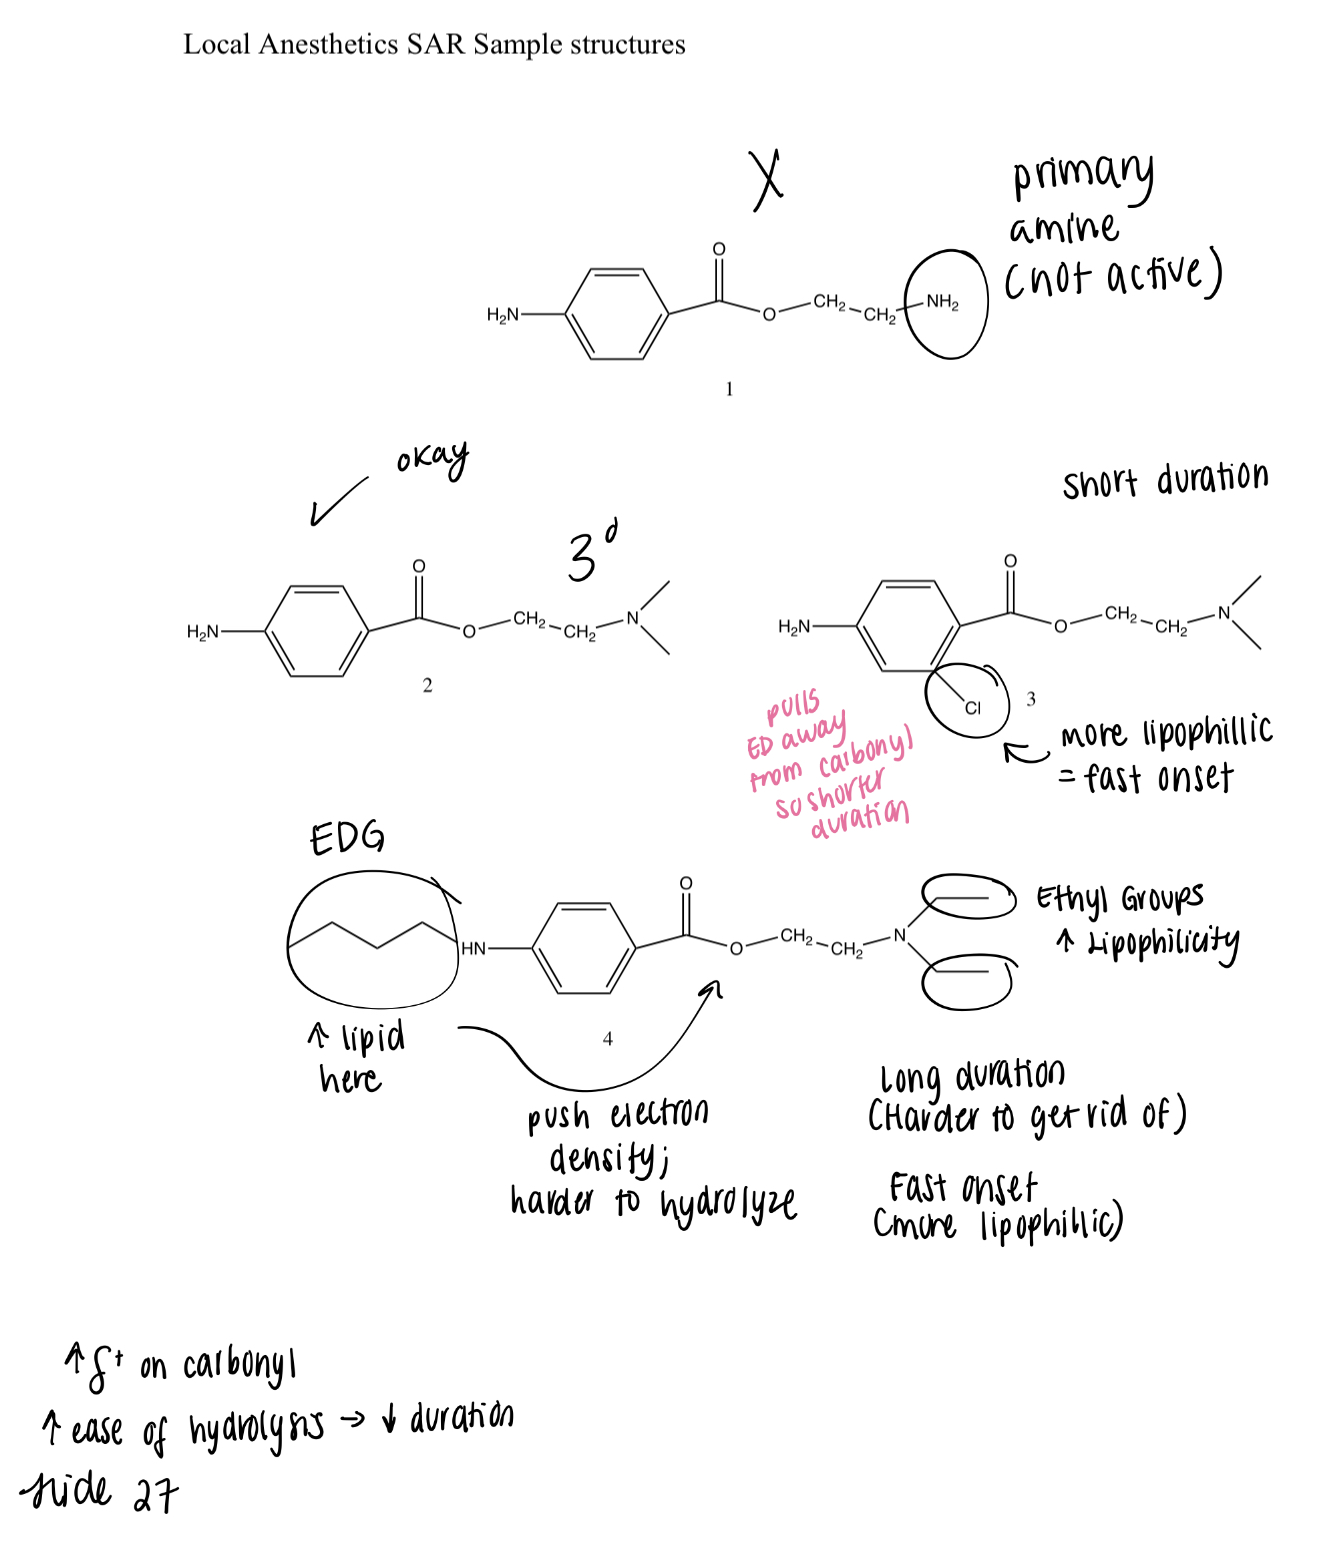 Local Anesthetics SAR Sample structures
X
primary
amine
(not active)
O
H₂N
O
CH₂
CH₂
NH₂
1
okay
3°
Short duration
O
H₂N
O
CH₂
CH₂
N
2
O
H₂N
O
CH₂
CH₂
N
Cl
3
pulls
ED away
from carbonyl
so shorter
duration
more lipophillic
= fast onset
EDG
O
HN
O
CH₂
CH₂
N
4
Ethyl Groups
↑ Lipophilicity
↑ lipid
here
push electron
density;
harder to hydrolyze
Long duration
(Harder to get rid of)
Fast onset
(more lipophillic)
↑ δ⁺ on carbonyl
↑ ease of hydrolysis → ↓ duration
slide 27